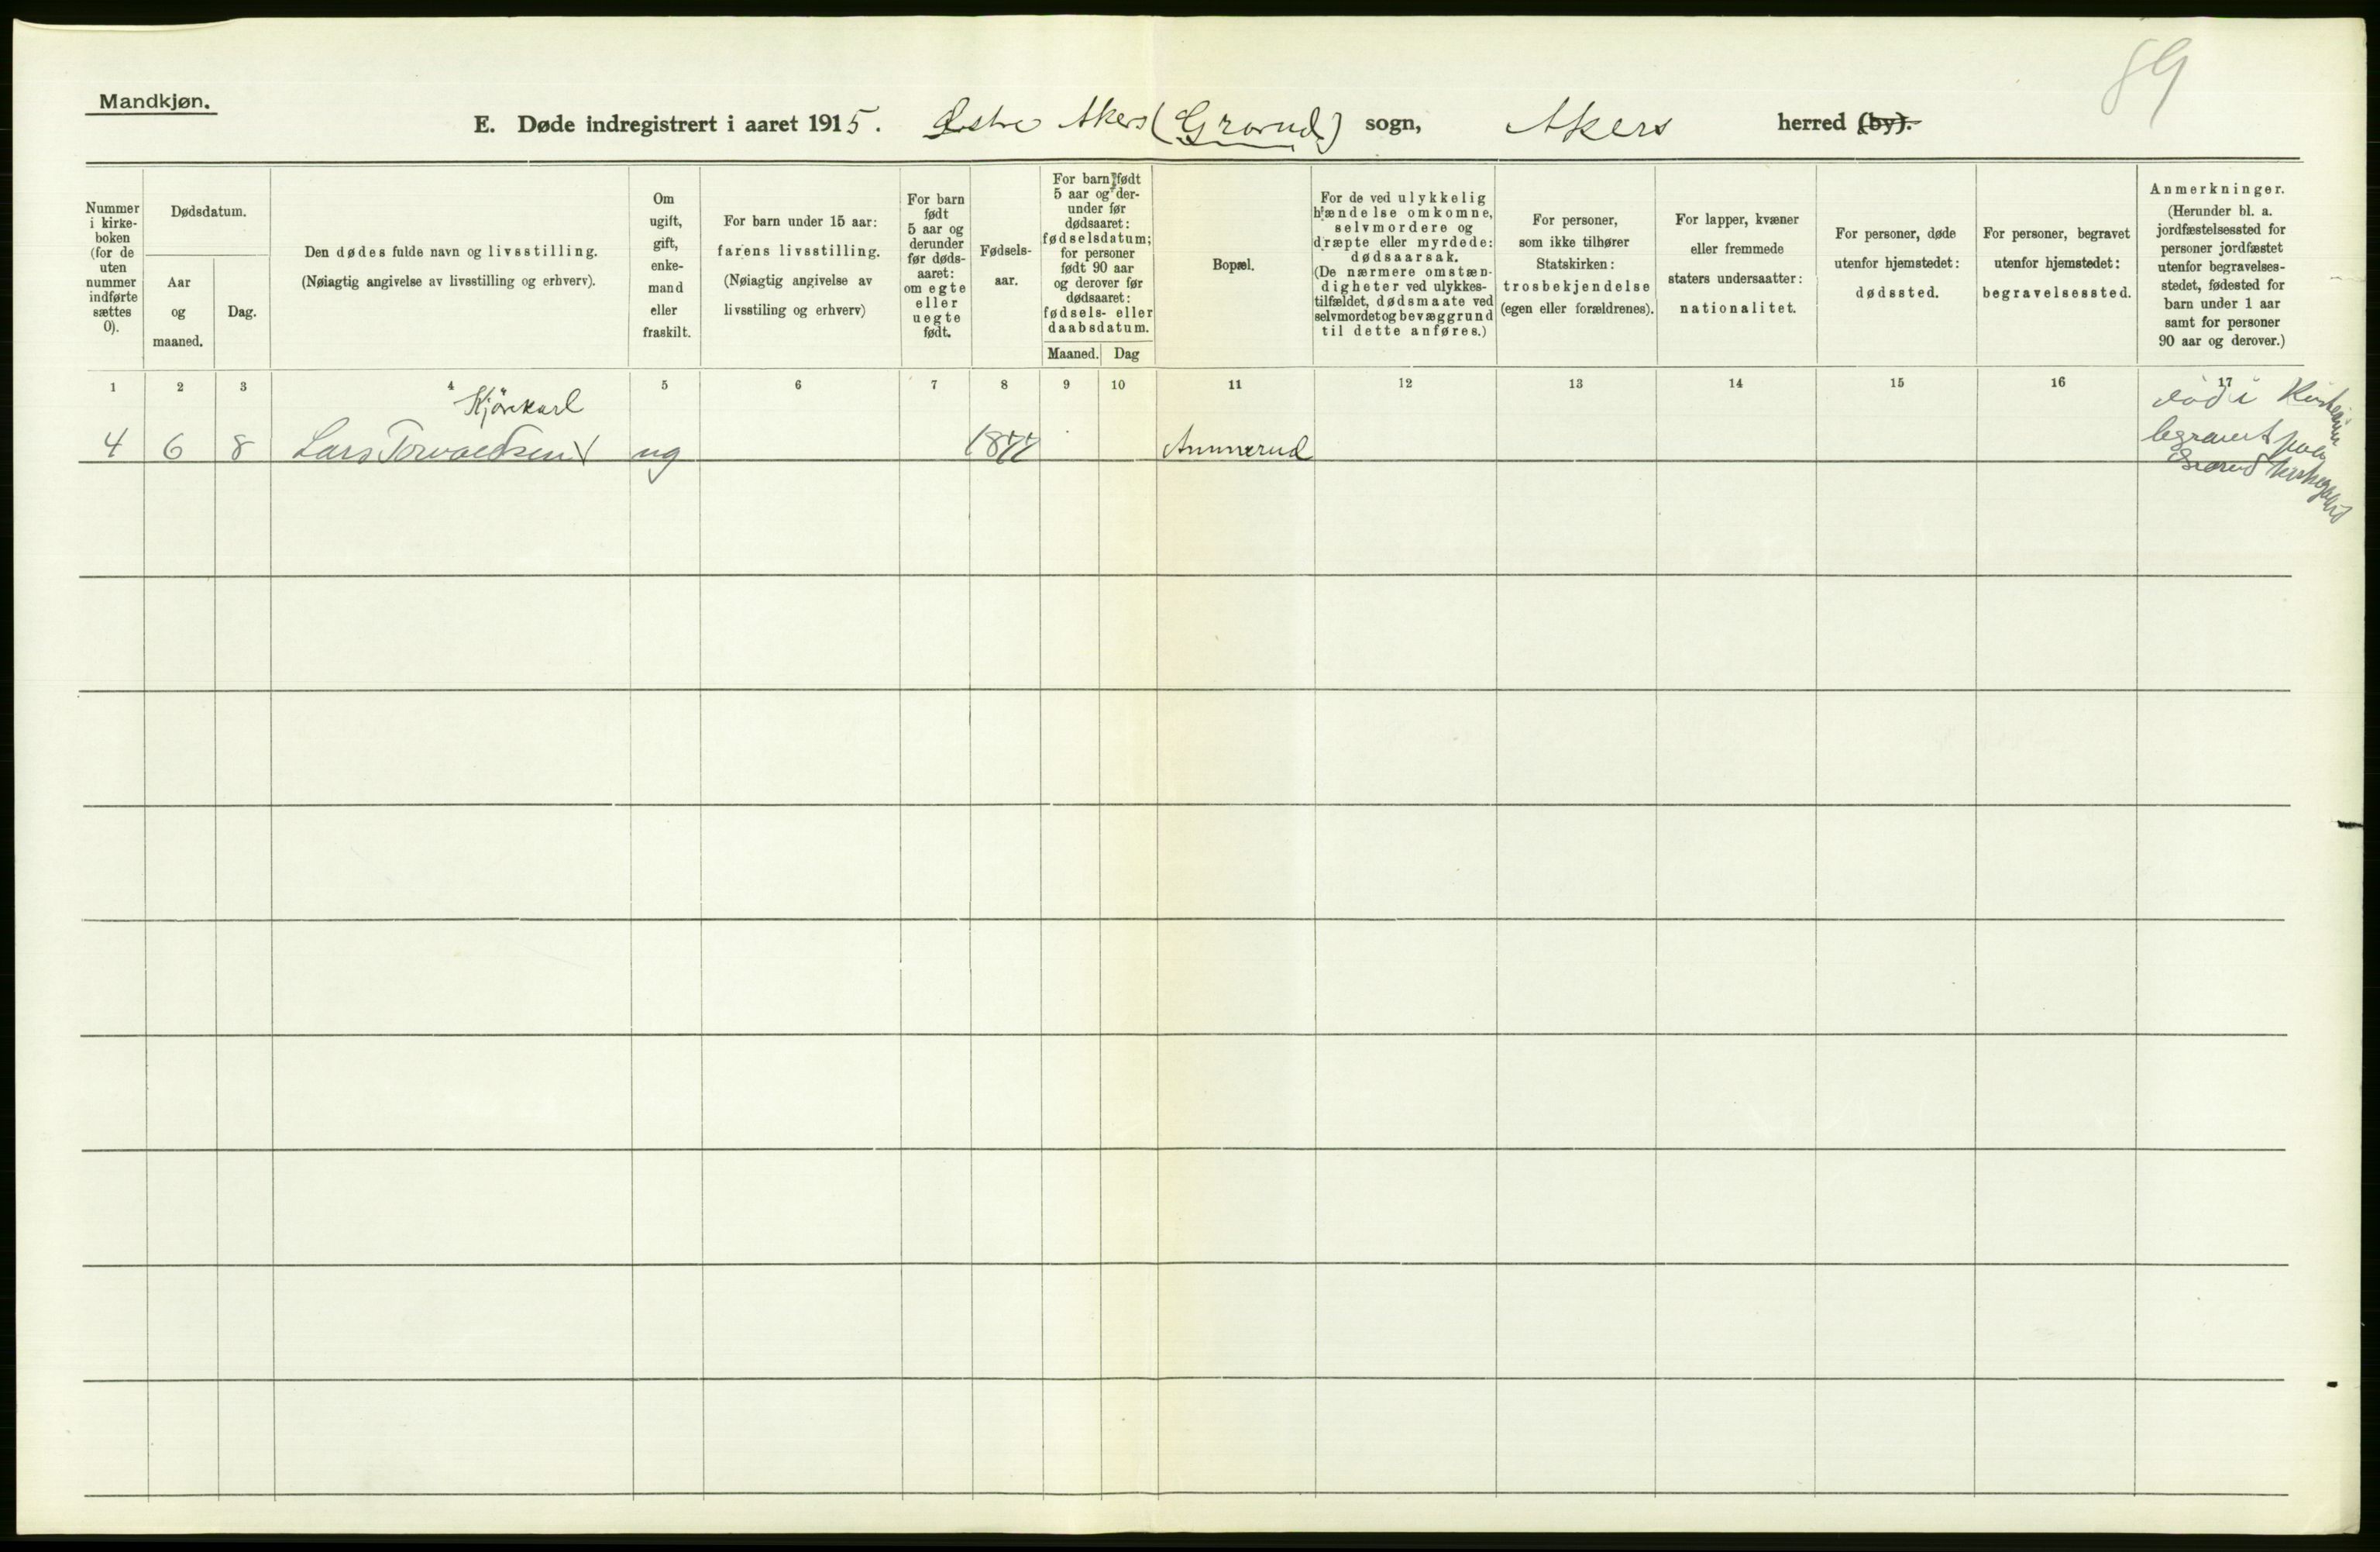 89
Mandkjøn.
E. Døde indregistrert i aaret 1915. Østre Akers (Grorud) sogn, Akers herred (by).
Nummer
i kirke-
boken
(for de
uten
nummer
indførte
sættes
0).
Dødsdatum.
Aar
og
maaned.
Dag.
Den dødes fulde navn og livsstilling.
(Nøiagtig angivelse av livsstilling og erhverv).
Om
ugift,
gift,
enke-
mand
eller
fraskilt.
For barn under 15 aar:
farens livsstilling.
(Nøiagtig angivelse av
livsstiling og erhverv)
For barn
født
5 aar og
derunder
før døds-
aaret:
om egte
eller
uegte
født.
Fødsels-
aar.
For barn født
5 aar og der-
under før
dødsaaret:
fødselsdatum;
for personer
født 90 aar
og derover før
dødsaaret:
fødsels- eller
daabsdatum.
Maaned. Dag
Bopæl.
For de ved ulykkelig
hændelse omkomne,
selvmordere og
dræpte eller myrdede:
dødsaarsak.
(De nærmere omstæn-
digheter ved ulykkes-
tilfældet, dødsmaate ved
selvmordet og bevæggrund
til dette anføres.)
For personer,
som ikke tilhører
Statskirken:
trosbekjendelse
(egen eller forældrenes).
For lapper, kvæner
eller fremmede
staters undersaatter:
nationalitet.
For personer, døde
utenfor hjemstedet:
dødssted.
For personer, begravet
utenfor hjemstedet:
begravelsessted.
Anmerkninger.
(Herunder bl. a.
jordfæstelsessted for
personer jordfæstet
utenfor begravelses-
stedet, fødested for
barn under 1 aar
samt for personer
90 aar og derover.)
1 2 3 4 5 6 7 8 9 10 11 12 13 14 15 16 17
Kjørekarl
4 6 8 Lars Torvaldsen ug 1877 Ammerud
død i
begravet paa
Grorud kirkegaard